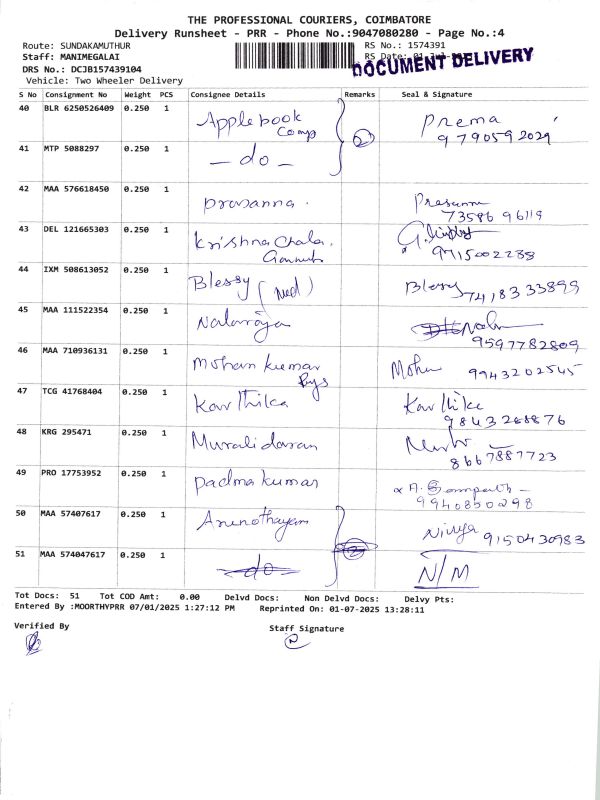 THE PROFESSIONAL COURIERS, COIMBATORE
Delivery Runsheet - PRR - Phone No.:9047080200 - Page No.:4
Route: SUNDAKAMUTHUR
RS No.: 1574391
Staff: MANIMEGALAI
RS Date:
DOCUMENT DELIVERY
DRS No.: DCJB157439104
Vehicle: Two Wheeler Delivery
S No Consignment No Weight PCS Consignee Details Remarks Seal & Signature
40 BLR 6250526409 0.250 1 Apple book Comp 2 Prema 9790592029
41 MTP 5088297 0.250 1 - do -
42 MAA 576618450 0.250 1 prasanna. Prasanna 73586 96119
43 DEL 121665303 0.250 1 Krishna chala. 9715002288
44 IXM 508613052 0.250 1 Blessy (Med) Blessy 7418333899
45 MAA 111522354 0.250 1 Nataraja 9597782809
46 MAA 710936131 0.250 1 Mohan kumar Mohan 9943202545
47 TCG 41768404 0.250 1 Karthika Karthika 9843268876
48 KRG 295471 0.250 1 Muralidaran 8667887723
49 PRO 17753952 0.250 1 Padma kumar A. Sampath 9940850298
50 MAA 57407617 0.250 1 Arunothayam Nivya 9150430983
51 MAA 574047617 0.250 1 - do - N/M
Tot Docs: 51 Tot COD Amt: 0.00 Delvd Docs: Non Delvd Docs: Delvy Pts:
Entered By :MOORTHYPRR 07/01/2025 1:27:12 PM Reprinted On: 01-07-2025 13:28:11
Verified By Staff Signature